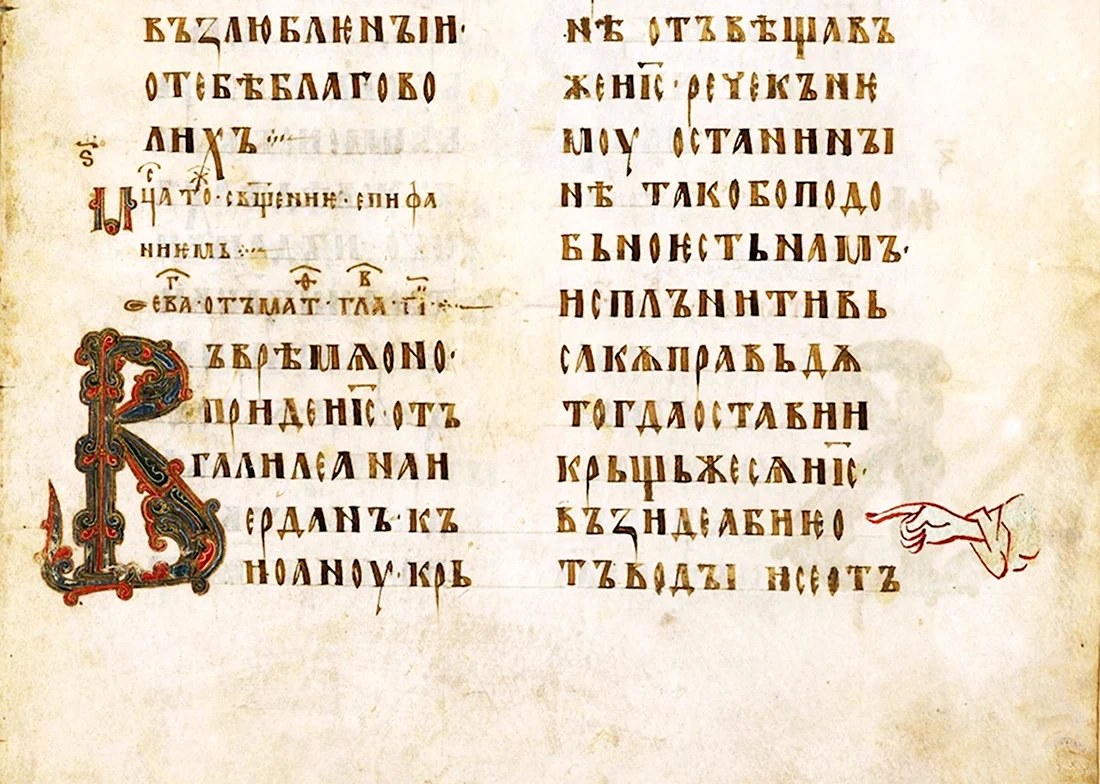 възлюблѥныи·
отебѣблагово
лихъ
ѕ҃
мⷭ҇ца тогⷤо·свѧщениѥ·епифа
ниѥмь
еваⷢ҇·отъматⷴ҇·глаⷡ҇·г҃і·
Въврѣмѧоно·
придеиі҃с·отъ
галилеꙗ наи
ерданъ·къ
иоаноу·крь
нѣ отъвѣщавъ
жеиі҃с·речекънѥ
моу останинꙑ
нѣ такобоподо
бьноѥстьнамъ·
исплънитивь
сꙗкѫправьдѫ
тогдаоставии
крьщьжесѧиі҃с·
възидеабиѥо
тъводꙑ исеотъ